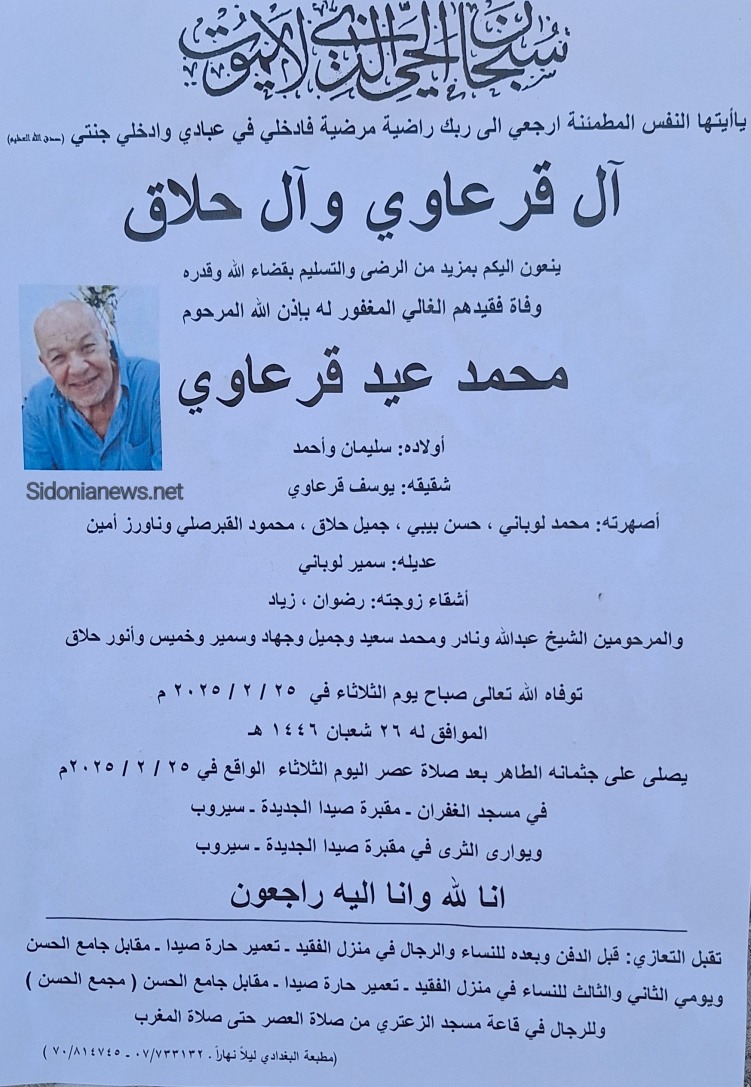 سبحان الحي الذي لا يموت
ياأيتها النفس المطمئنة ارجعي الى ربك راضية مرضية فادخلي في عبادي وادخلي جنتي (صدق الله العظيم)
آل قرعاوي وآل حلاق
ينعون اليكم بمزيد من الرضى والتسليم بقضاء الله وقدره
وفاة فقيدهم الغالي المغفور له بإذن الله المرحوم
محمد عيد قرعاوي
أولاده: سليمان وأحمد
Sidonianews.net
شقيقه: يوسف قرعاوي
أصهرته: محمد لوباني ، حسن بيبي ، جميل حلاق ، محمود القبرصلي وناورز أمين
عديله: سمير لوباني
أشقاء زوجته: رضوان ، زياد
والمرحومين الشيخ عبدالله ونادر ومحمد سعيد وجميل وجهاد وسمير وخميس وأنور حلاق
توفاه الله تعالى صباح يوم الثلاثاء في ٢٥ / ٢ / ٢٠٢٥ م
الموافق له ٢٦ شعبان ١٤٤٦ هـ
يصلى على جثمانه الطاهر بعد صلاة عصر اليوم الثلاثاء الواقع في ٢٥ / ٢ / ٢٠٢٥م
في مسجد الغفران - مقبرة صيدا الجديدة - سيروب
ويوارى الثرى في مقبرة صيدا الجديدة - سيروب
انا لله وانا اليه راجعون
تقبل التعازي: قبل الدفن وبعده للنساء والرجال في منزل الفقيد - تعمير حارة صيدا - مقابل جامع الحسن
ويومي الثاني والثالث للنساء في منزل الفقيد - تعمير حارة صيدا - مقابل جامع الحسن ( مجمع الحسن )
وللرجال في قاعة مسجد الزعتري من صلاة العصر حتى صلاة المغرب
(مطبعة البغدادي ليلاً نهاراً . ٠٧/٧٣٣١٣٢ - ٧٠/٨١٤٧٤٥ )